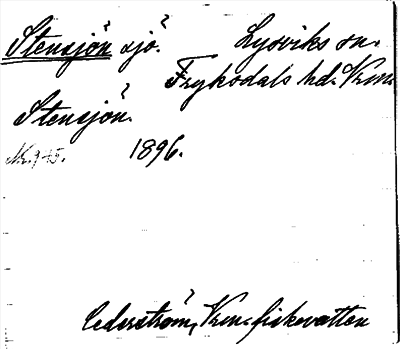 Stensjön sjö. Lysviks sn.
Fryksdals hd. Vrml.
Stensjön.
1896.
Cederström, Vrml. fiskevatten